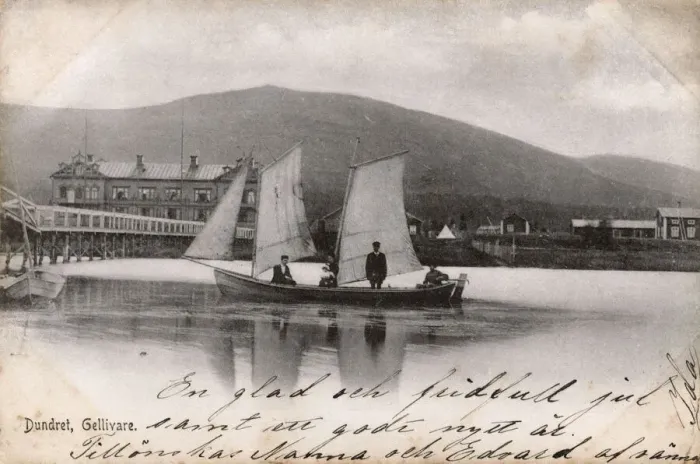 En glad och fridfull jul
Dundret, Gellivare.
samt ett godt nytt år.
Tillönskas Nanna och Edvard af vänn